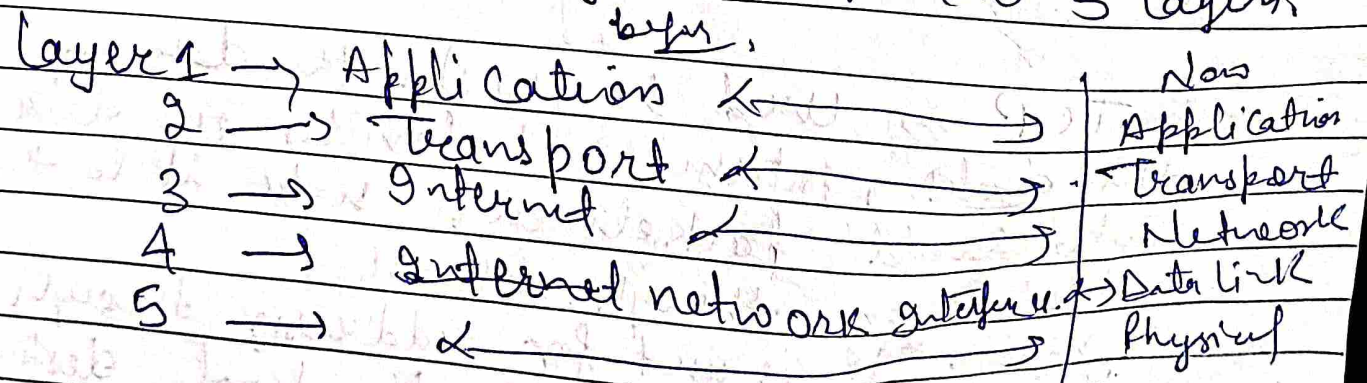 5 layers
before. Now
Layer 1 → Application ↔ Application
2 → Transport ↔ Transport
3 → Internet ↔ Network
4 → network Interface ↔ Data Link
5 → ↔ Physical